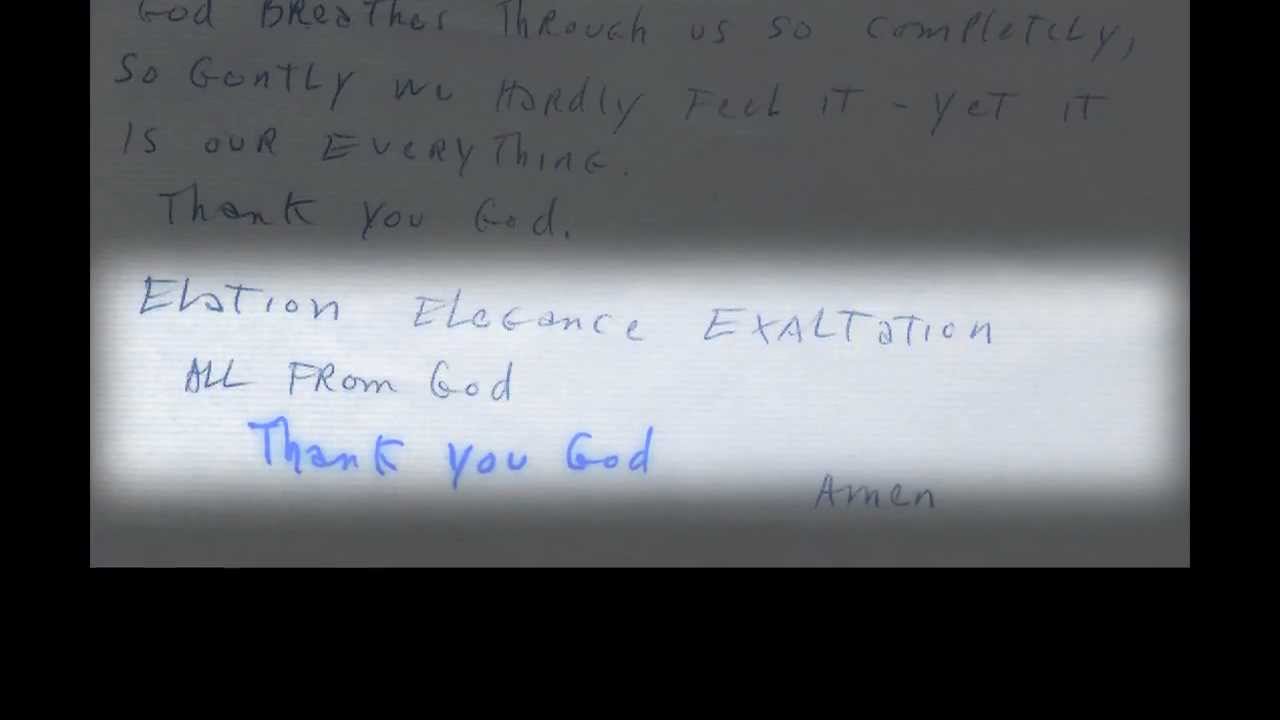 God BReathes Through us so completely,
So Gently we Hardly Feel iT - yeT iT
is ouR EVERYThing.
Thank you God.
ELaTion ELegance EXALTaTion
ALL FRom God
Thank you God
Amen